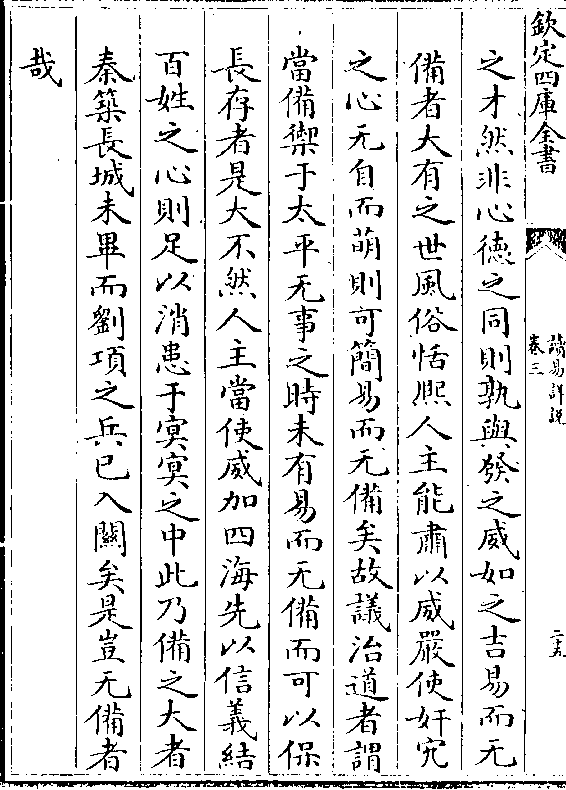 欽定四庫全書
讀易詳說
卷三
二十五
之才然非心德之同則孰與發之威如之吉易而无
備者大有之世風俗恬熈人主能肅以威嚴使奸宄
之心无自而萌則可簡易而无備矣故議治道者謂
當備禦于太平无事之時未有易而无備而可以保
長存者是大不然人主當使威加四海先以信義結
百姓之心則足以消患于寞寞之中此乃備之大者
秦築長城未畢而劉項之兵已入關矣是豈无備者
哉